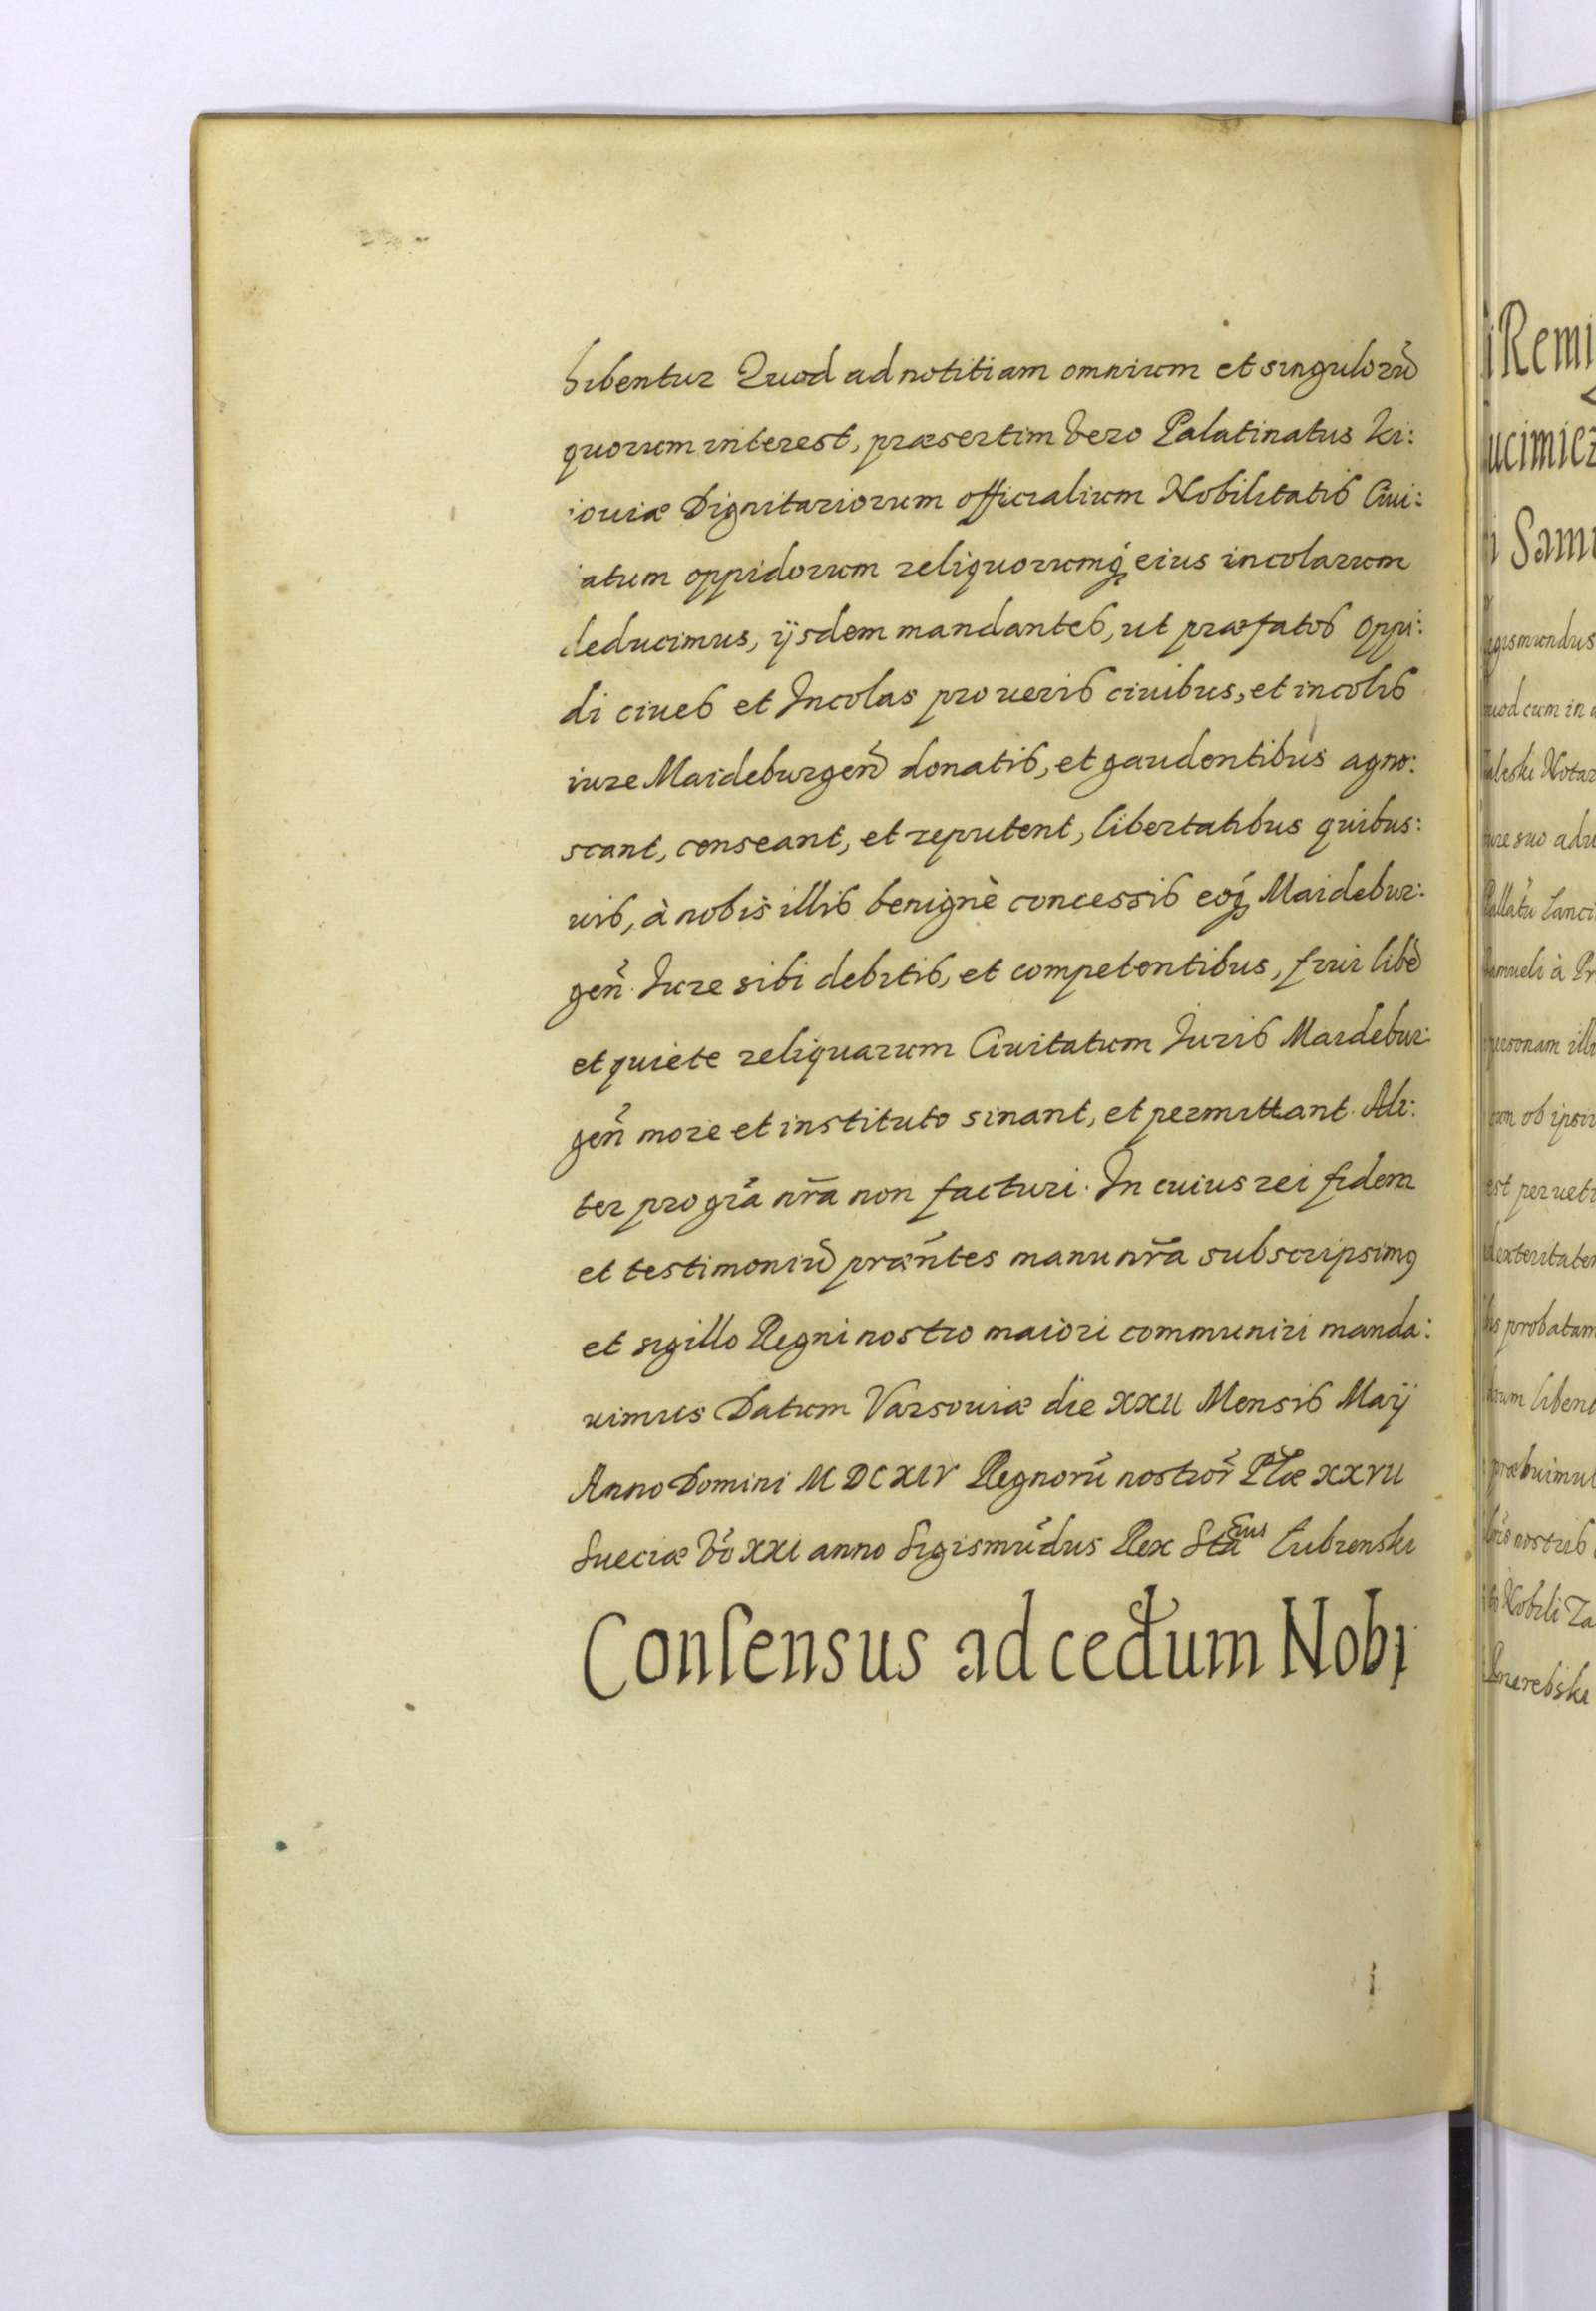 hibentur Quod ad notitiam omnium et singuloru͂
quorum interest, præsertim vero Palatinatus Ki:
iouiæ Dignitariorum officialium Nobilitatis Ciui:
tatum oppidorum reliquorumq́ꝫ eius incolarum
deducimus, ijsdem mandantes, ut præfatos Oppi:
di ciues et Incolas pro ueris ciuibus, et incolis
iure Maideburgen̄ donatis, et gaudentibus agno:
scant, censeant, et reputent, libertatibus quibus:
uis, à nobis illis benignè concessis eoq́ꝫ Maidebur:
gen̄ Iure sibi debitis, et competentibus, frui libe͂
et quiete reliquarum Ciuitatum Iuris Maidebur:
gen̄ more et instituto sinant, et permittant. Ali:
ter pro gr̄a nr̄a non facturi. In cuius rei fidem
et testimoniu͂ præn̄tes manu nr̄a subscripsimꝰ
et sigillo Regni nostro maiori communiri manda:
uimus Datum Varsouiæ die XXII Mensis Maij
Anno Domini MDCXIV Regnoru͂ nostror̄ Pl̄æ XXVII
Sueciæ v̄o XXI anno Sigismu͂dus Rex Sta͂us Lubienski
Conſensus ad ceđum Nobi
i Remi
ucimiez
i Samu
igismundus
uod cum in a
Zaleski Notar
iure suo adu
Pallatu͂ Lanci
Samueli à Pr
personam illi
tum ob ipsiu
est per uete
dexteritatem
bis probatam
tum libent
præbuimus
br̄is nostris
Nobili Za